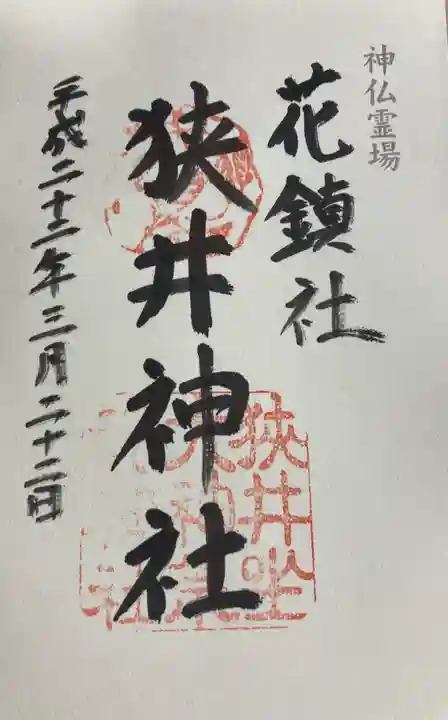 神仏霊場
花鎮社
狭井神社
平成二十二年三月二十二日
狭井坐
大神